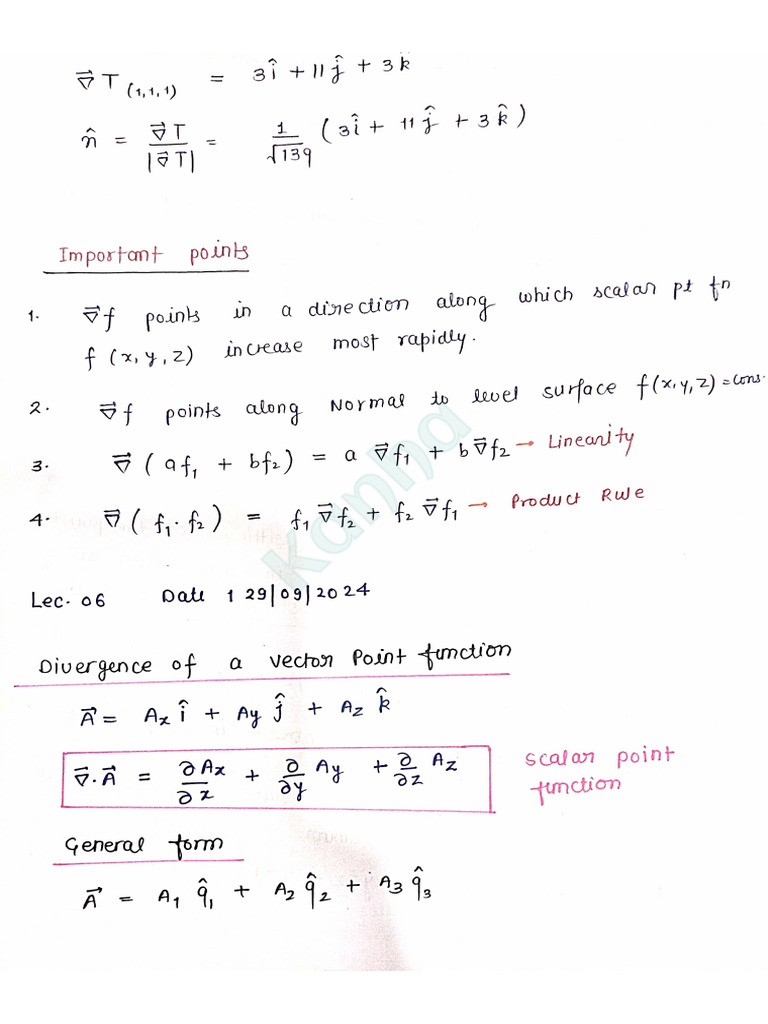 ∇⃗T (1,1,1) = 3î + 11ĵ + 3k̂
n̂ = ∇⃗T / |∇⃗T| = 1/√139 (3î + 11ĵ + 3k̂)
Important points
1. ∇⃗f points in a direction along which scalar pt fn
f (x, y, z) increase most rapidly.
2. ∇⃗f points along Normal to level surface f(x,y,z) = cons.
3. ∇⃗ (af₁ + bf₂) = a ∇⃗f₁ + b∇⃗f₂ → Linearity
4. ∇⃗ (f₁·f₂) = f₁∇⃗f₂ + f₂∇⃗f₁ → Product Rule
Kanha
Lec. 06 Date 1 29|09|2024
Divergence of a vector Point function
A⃗ = Aₓ î + Ay ĵ + Az k̂
∇⃗·A⃗ = ∂Ax/∂x + ∂/∂y Ay + ∂/∂z Az
scalar point
function
General form
A⃗ = A₁ q̂₁ + A₂ q̂₂ + A₃ q̂₃